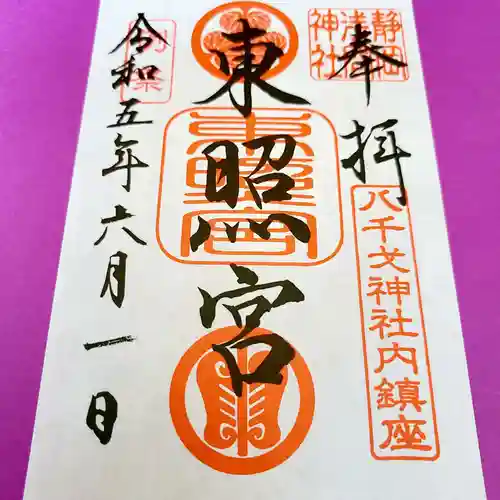 奉拝
静岡
浅間
神社
八千戈神社内鎮座
東照宮
東照宮
令和五年六月一日